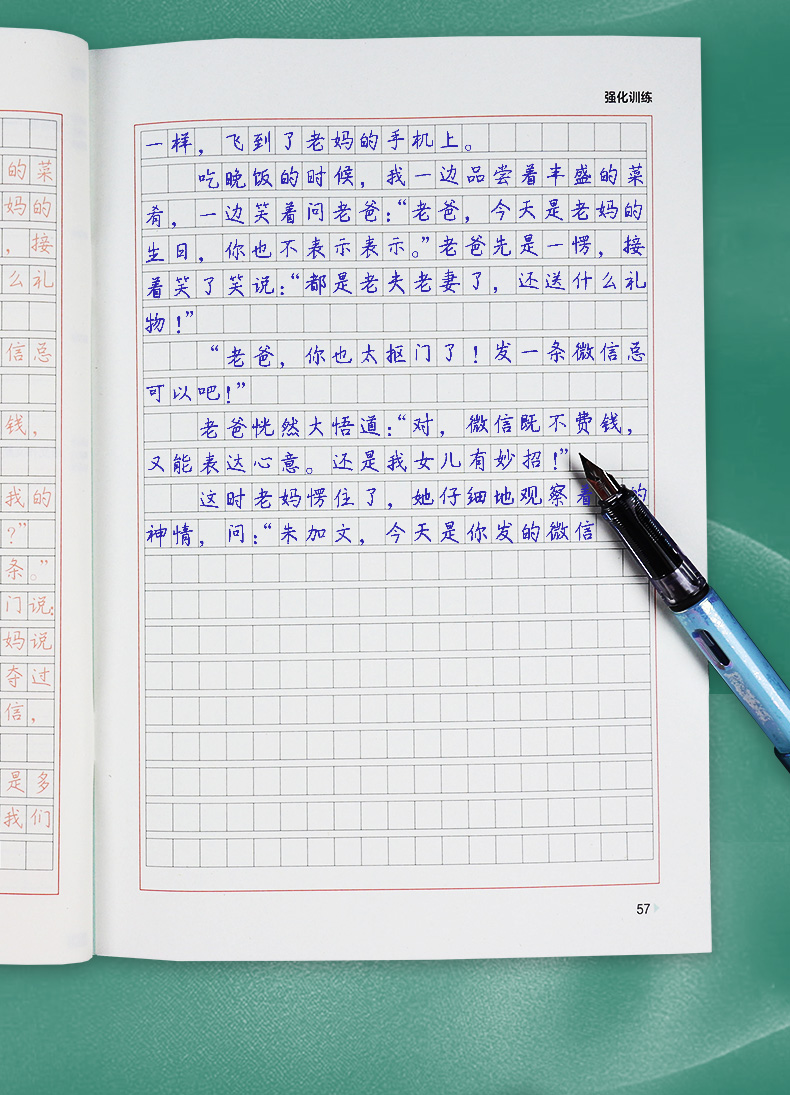 强化训练
的菜
妈的
，接
么礼
信总
钱，
我的
？”
条。”
门说：
妈说
夺过
信，
是多
我们
一样，飞到了老妈的手机上。
吃晚饭的时候，我一边品尝着丰盛的菜
肴，一边笑着问老爸：“老爸，今天是老妈的
生日，你也不表示表示。”老爸先是一愣，接
着笑了笑说：“都是老夫老妻了，还送什么礼
物！”
“老爸，你也太抠门了！发一条微信总
可以吧！”
老爸恍然大悟道：“对，微信既不费钱，
又能表达心意。还是我女儿有妙招！”
这时老妈愣住了，她仔细地观察着的
神情，问：“朱加文，今天是你发的微信
57